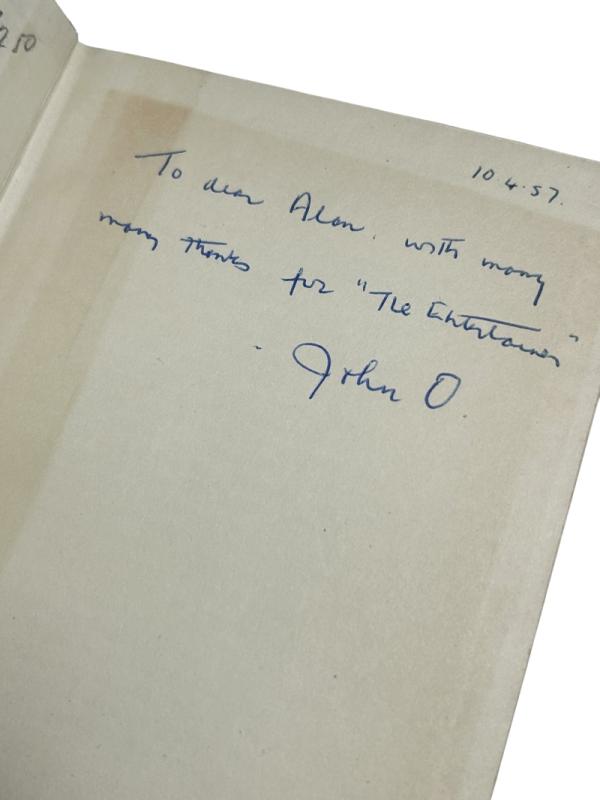 250
10.4.57.
To dear Alan. with many
many thanks for "The Entertainer"
- John O.